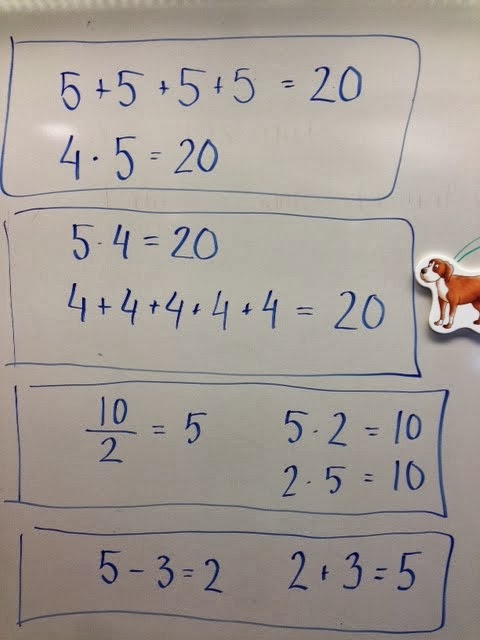 5 + 5 + 5 + 5 = 20
4 · 5 = 20
5 · 4 = 20
4 + 4 + 4 + 4 + 4 = 20
10/2 = 5 5 · 2 = 10
2 · 5 = 10
5 - 3 = 2 2 + 3 = 5